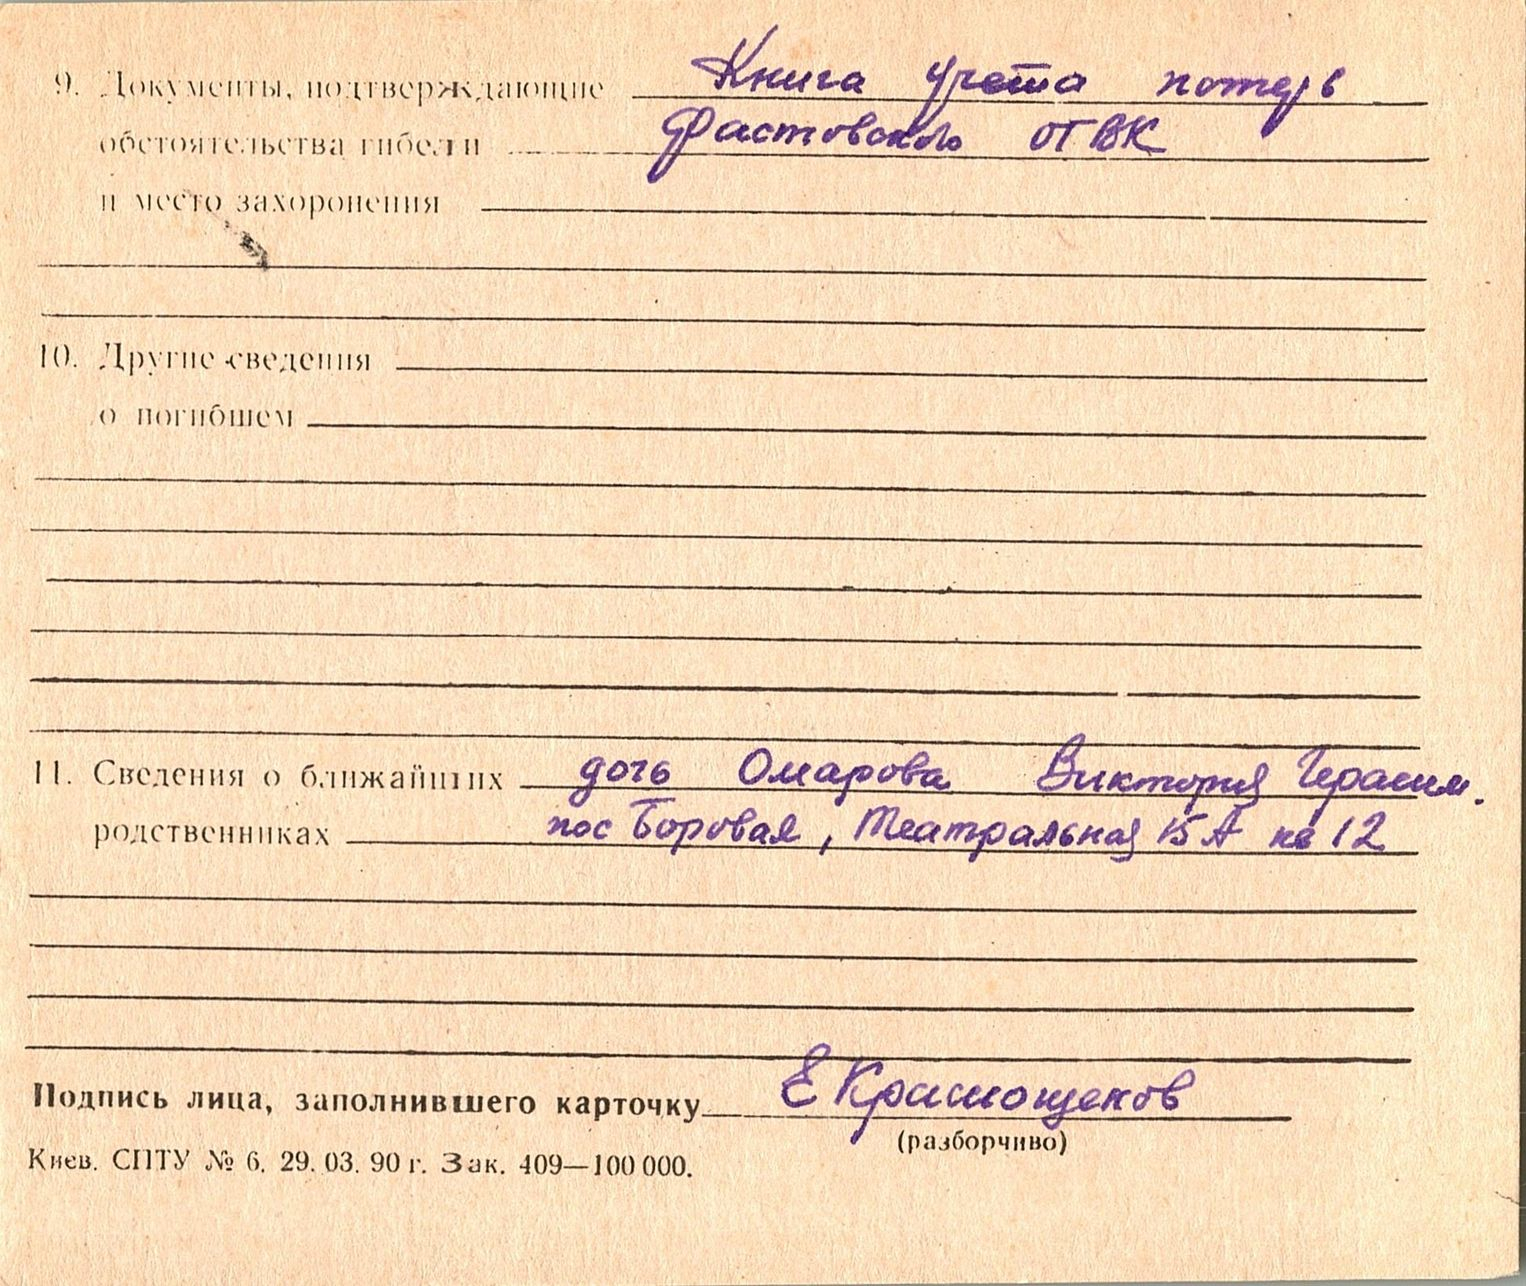 9. Документы, подтверждающие Книга учета потерь
обстоятельства гибели Фастовского ОГВК
и место захоронения
10. Другие сведения
о погибшем
11. Сведения о ближайших дочь Омарова Виктория Герасим.
родственниках пос Боровая, Театральная 15А кв 12
Подпись лица, заполнившего карточку Е Краснощеков
(разборчиво)
Киев. СПТУ № 6. 29. 03. 90 г. Зак. 409—100 000.